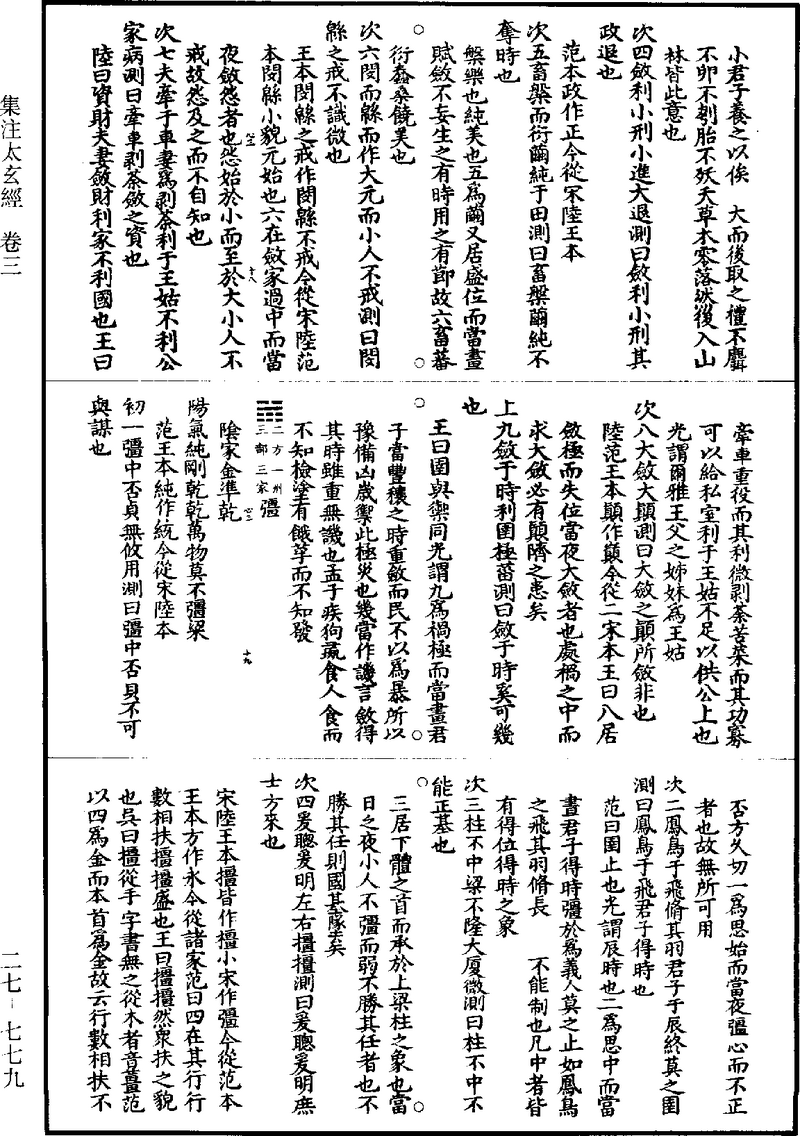 小君子養之以俟　大而後取之禮不麛
不卵不剔胎不殀夭草木零落然後入山
林皆此意也
次四斂利小刑小進大退測曰斂利小刑其
政退也
范本政作正今從宋陸王本
次五畜槃而衍繭純于田測曰畜槃繭純不
奪時也
槃樂也純美也五爲繭又居盛位而當晝
賦斂不妄生之有時用之有節故六畜蕃
衍蠶桑饒美也
次六閔而緜而作大元而小人不戒測曰閔
緜之戒不識微也
王本閔緜之戒作閔緜不戒今從宋陸范
本閔緜小貌元始也六在斂家過中而當
夜斂怨者也怨始於小而至於大小人不
戒故怨及之而不自知也
次七夫牽于車妻爲剥荼利于王姑不利公
家病測曰牽車剥荼斂之資也
陸曰資財夫妻斂財利家不利國也王曰
牽車重役而其利微剥荼苦菜而其功寡
可以給私室利于王姑不足以供公上也
光謂爾雅王父之姊妹爲王姑
次八大斂大顚測曰大斂之顚所斂非也
陸范王本顚作巔今從二宋本王曰八居
斂極而失位當夜大斂者也處禍之中而
求大斂必有顚隮之患矣
上九斂于時利圉極菑測曰斂于時奚可幾
也
王曰圉與禦同光謂九爲禍極而當晝君
子當豐穰之時重斂而民不以爲暴所以
豫備凶歲禦此極災也幾當作譏言斂得
其時雖重無譏也孟子疾狗彘食人食而
不知檢塗有餓莩而不知發
䷀ 二方一州三部三家 彊
陰家金準乾
陽氣純剛乾乾萬物莫不彊梁
范王本純作統今從宋陸本
初一彊中否貞無攸用測曰彊中否貞不可
與謀也
否方久切一爲思始而當夜彊心而不正
者也故無所可用
次二鳳鳥于飛脩其羽君子于辰終莫之圉
測曰鳳鳥于飛君子得時也
范曰圉止也光謂辰時也二爲思中而當
晝君子得時彊於爲義人莫之止如鳳鳥
之飛其羽脩長　不能制也凡中者皆
有得位得時之象
次三柱不中梁不隆大厦微測曰柱不中不
能正基也
三居下體之首而承於上梁柱之象也當
日之夜小人不彊而弱不勝其任者也不
勝其任則國基隊矣
次四爰聰爰明左右橿橿測曰爰聰爰明庶
士方來也
宋陸王本橿皆作橿小宋作彊今從范本
王本方作永今從諸家范曰四在其行行
數相扶橿橿盛也王曰橿橿然衆扶之貌
也吳曰橿從手字書無之從木者音薑范
以四爲金而本首爲金故云行數相扶不
集注太玄經　卷三
二七—七七九